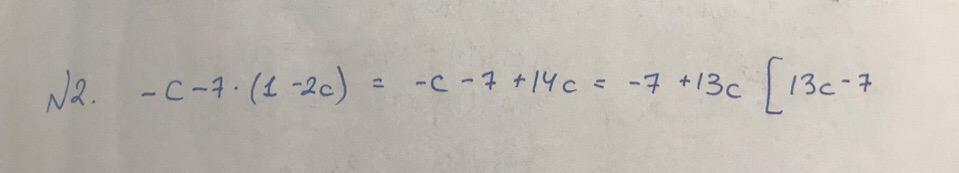 №2. -c-7·(1-2c) = -c-7+14c = -7+13c [13c-7